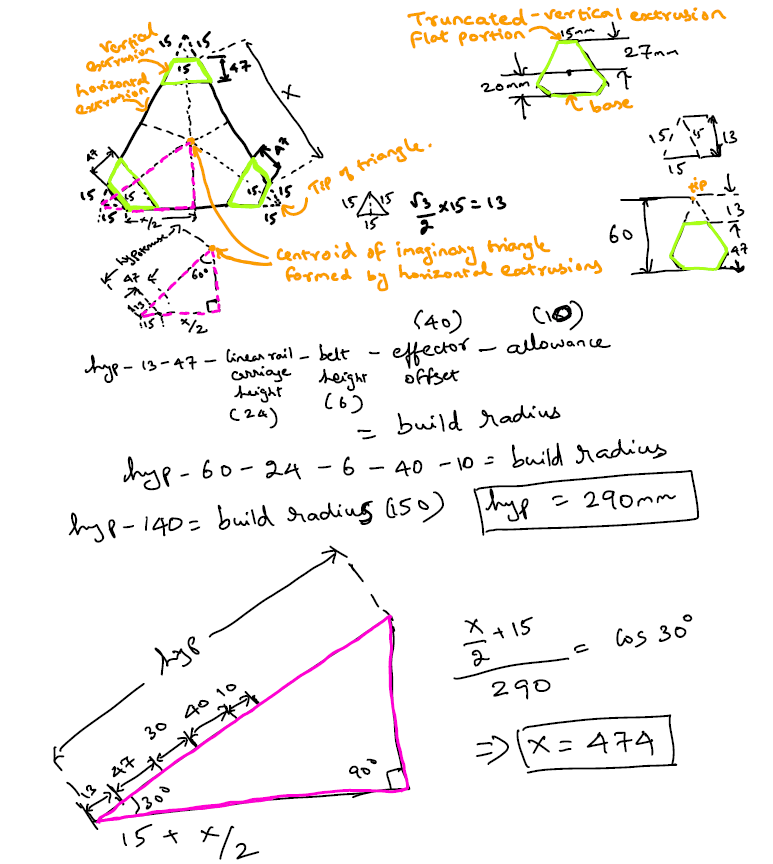 Truncated-vertical extrusion
flat portion
15mm
27mm
20mm
base
vertical
extrusion
horizontal
extrusion
15 15
15
47
x
47
15
15
15
x/2
47
15
15
15
Tip of triangle.
15 15
15
√3/2 x 15 = 13
15 15 13
15
tip
60
13
47
centroid of imaginary triangle
formed by horizontal extrusions
hypotenuse
47
13
60°
15
x/2
(40) (10)
hyp - 13 - 47 - linear rail - belt - effector - allowance
carriage height offset
height (6)
(24)
= build radius
hyp - 60 - 24 - 6 - 40 - 10 = build radius
hyp - 140 = build radius (150) hyp = 290mm
hyp
13 47 30 40 10
30°
90°
15 + x/2
x/2 + 15 / 290 = cos 30°
⇒ x = 474